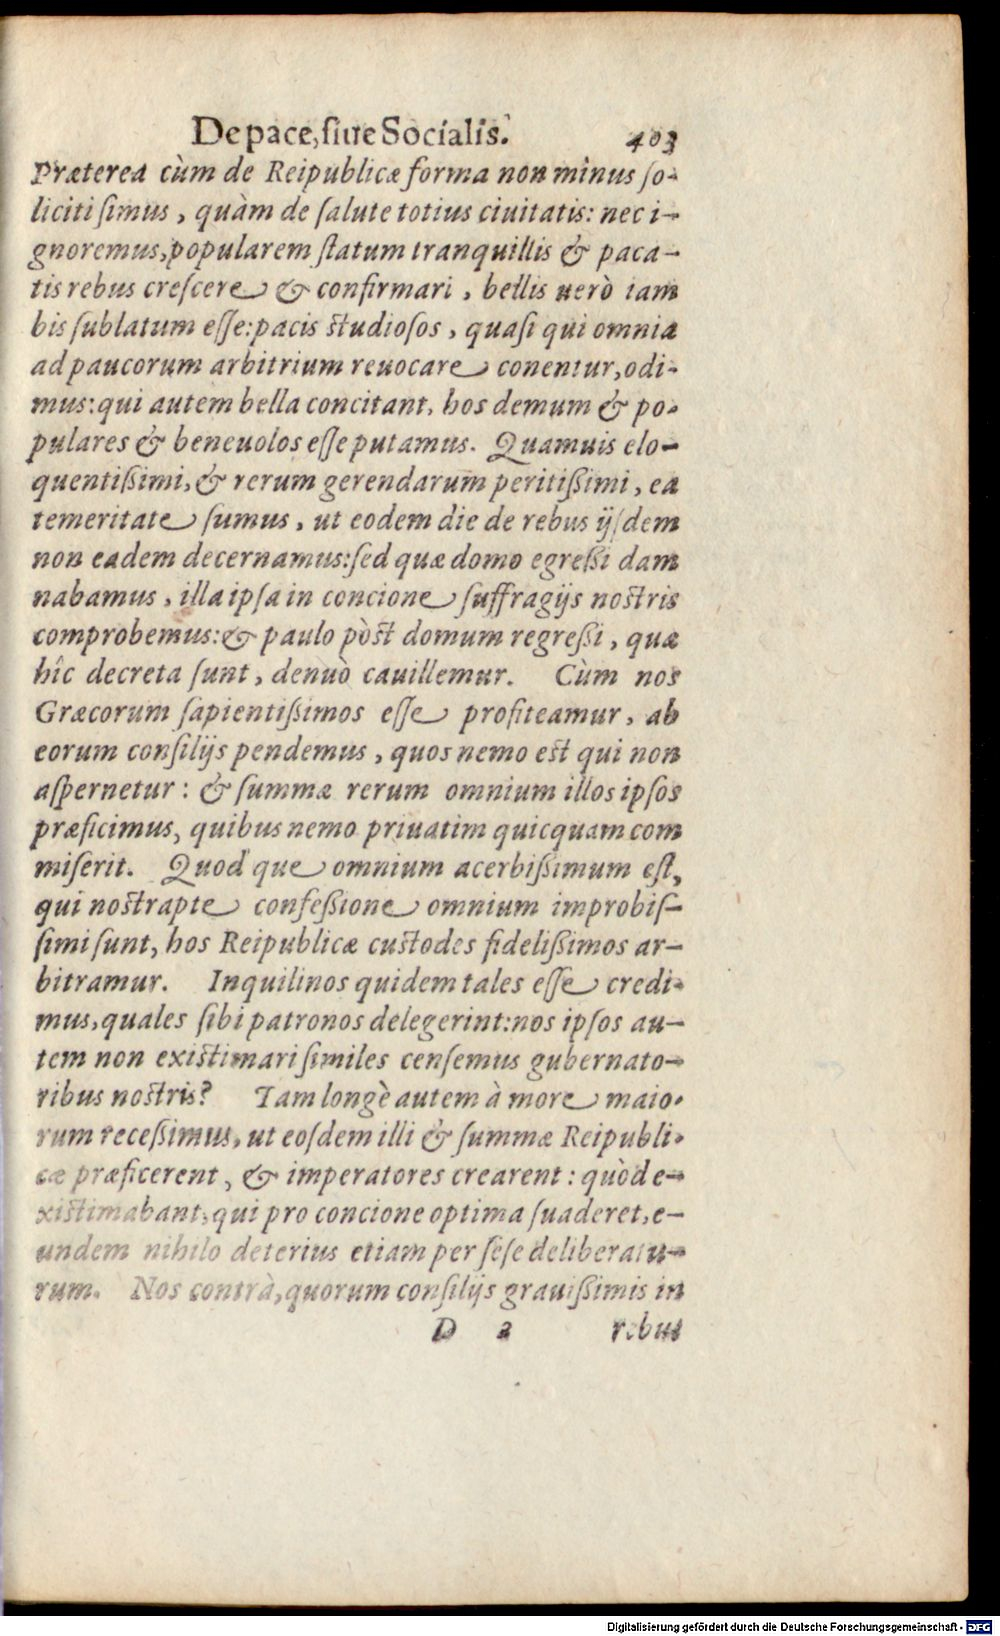 De pace, ſiue Socialis. 403
Præterea cùm de Reipublicæ forma non minus ſo-
liciti ſimus, quàm de ſalute totius ciuitatis: nec i-
gnoremus, popularem ſtatum tranquillis & paca-
tis rebus creſcere & confirmari, bellis uerò iam
bis ſublatum eſſe: pacis ſtudioſos, quaſi qui omnia
ad paucorum arbitrium reuocare conentur, odi-
mus: qui autem bella concitant, hos demum & po-
pulares & beneuolos eſſe putamus. Quamuis elo-
quentißimi, & rerum gerendarum peritißimi, ea
temeritate ſumus, ut eodem die de rebus ijſdem
non eadem decernamus: ſed quæ domo egreßi dam
nabamus, illa ipſa in concione ſuffragijs noſtris
comprobemus: & paulo pòſt domum regreßi, quæ
hîc decreta ſunt, denuò cauillemur. Cùm nos
Græcorum ſapientißimos eſſe profiteamur, ab
eorum conſilijs pendemus, quos nemo eſt qui non
aſpernetur: & ſummæ rerum omnium illos ipſos
præficimus, quibus nemo priuatim quicquam com
miſerit. Quod que omnium acerbißimum eſt,
qui noſtrapte confeßione omnium improbiſ-
ſimi ſunt, hos Reipublicæ cuſtodes fidelißimos ar-
bitramur. Inquilinos quidem tales eſſe credi-
mus, quales ſibi patronos delegerint: nos ipſos au-
tem non exiſtimari ſimiles cenſemus gubernato-
ribus noſtris? Iam longè autem à more maio-
rum receßimus, ut eoſdem illi & ſummæ Reipubli-
cæ præficerent, & imperatores crearent: quòd e-
xiſtimabant, qui pro concione optima ſuaderet, e-
undem nihilo deterius etiam per ſeſe deliberatu-
rum. Nos contrà, quorum conſilijs grauißimis in
D 2 rebus
Digitalisierung gefördert durch die Deutsche Forschungsgemeinschaft - DFG